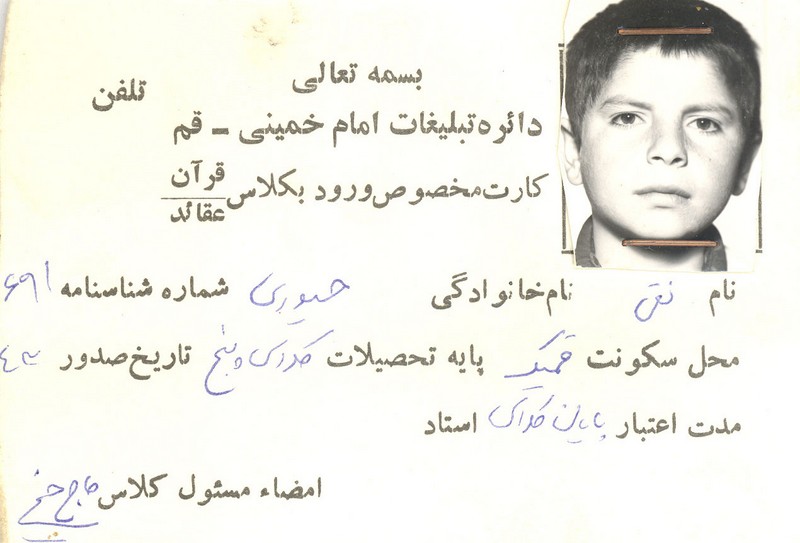 بسمه تعالی
تلفن
دائره تبلیغات امام خمینی - قم
کارت مخصوص ورود بکلاس قرآن
عقائد
نام نقی نام خانوادگی شماره شناسنامه ۶۹۱
محل سکونت پایه تحصیلات کلاس پنج تاریخ صدور
مدت اعتبار پایان کلاس استاد
امضاء مسئول کلاس